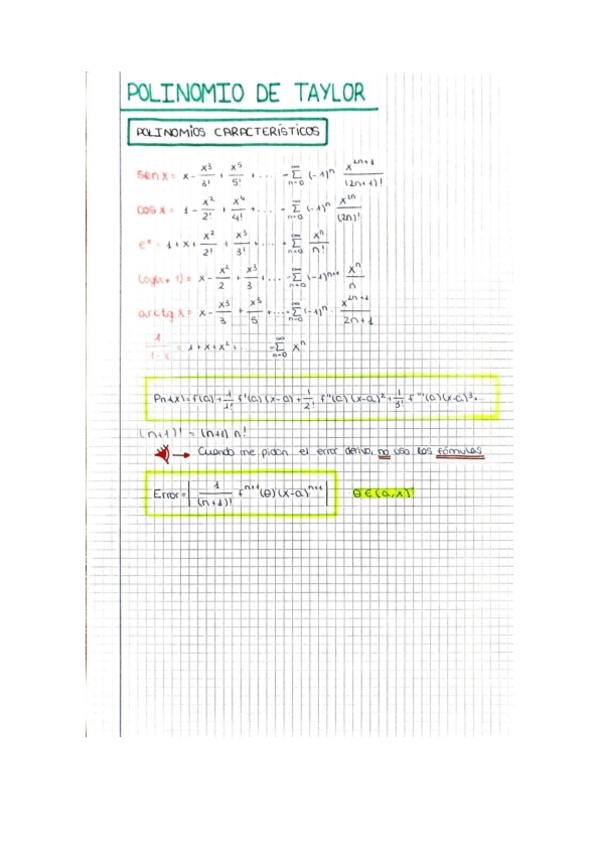 POLINOMIO DE TAYLOR
POLINOMIOS CARACTERÍSTICOS
sen x = x - x³/3! + x⁵/5! + ... = ∞Σn=0 (-1)ⁿ x²ⁿ⁺¹/(2n+1)!
cos x = 1 - x²/2! + x⁴/4! + ... = ∞Σn=0 (-1)ⁿ x²ⁿ/(2n)!
eˣ = 1 + x + x²/2! + x³/3! + ... = ∞Σn=0 xⁿ/n!
log(x+1) = x - x²/2 + x³/3 + ... = ∞Σn=0 (-1)ⁿ⁺¹ xⁿ/n
arctg x = x - x³/3 + x⁵/5 + ... = ∞Σn=0 (-1)ⁿ · x²ⁿ⁺¹/2n+1
1/1-x = 1 + x + x² + ... = ∞Σn=0 xⁿ
Pn,(x) = f(a) + 1/1! f'(a)(x-a) + 1/2! f''(a)(x-a)² + 1/3! f'''(a)(x-a)³...
(n+1)! = (n+1) n!
→ Cuando me pidan el error derivo, no uso las fórmulas
Error = | 1/(n+1)! fⁿ⁺¹(θ)(x-a)ⁿ⁺¹ | θ ∈ (a,x)